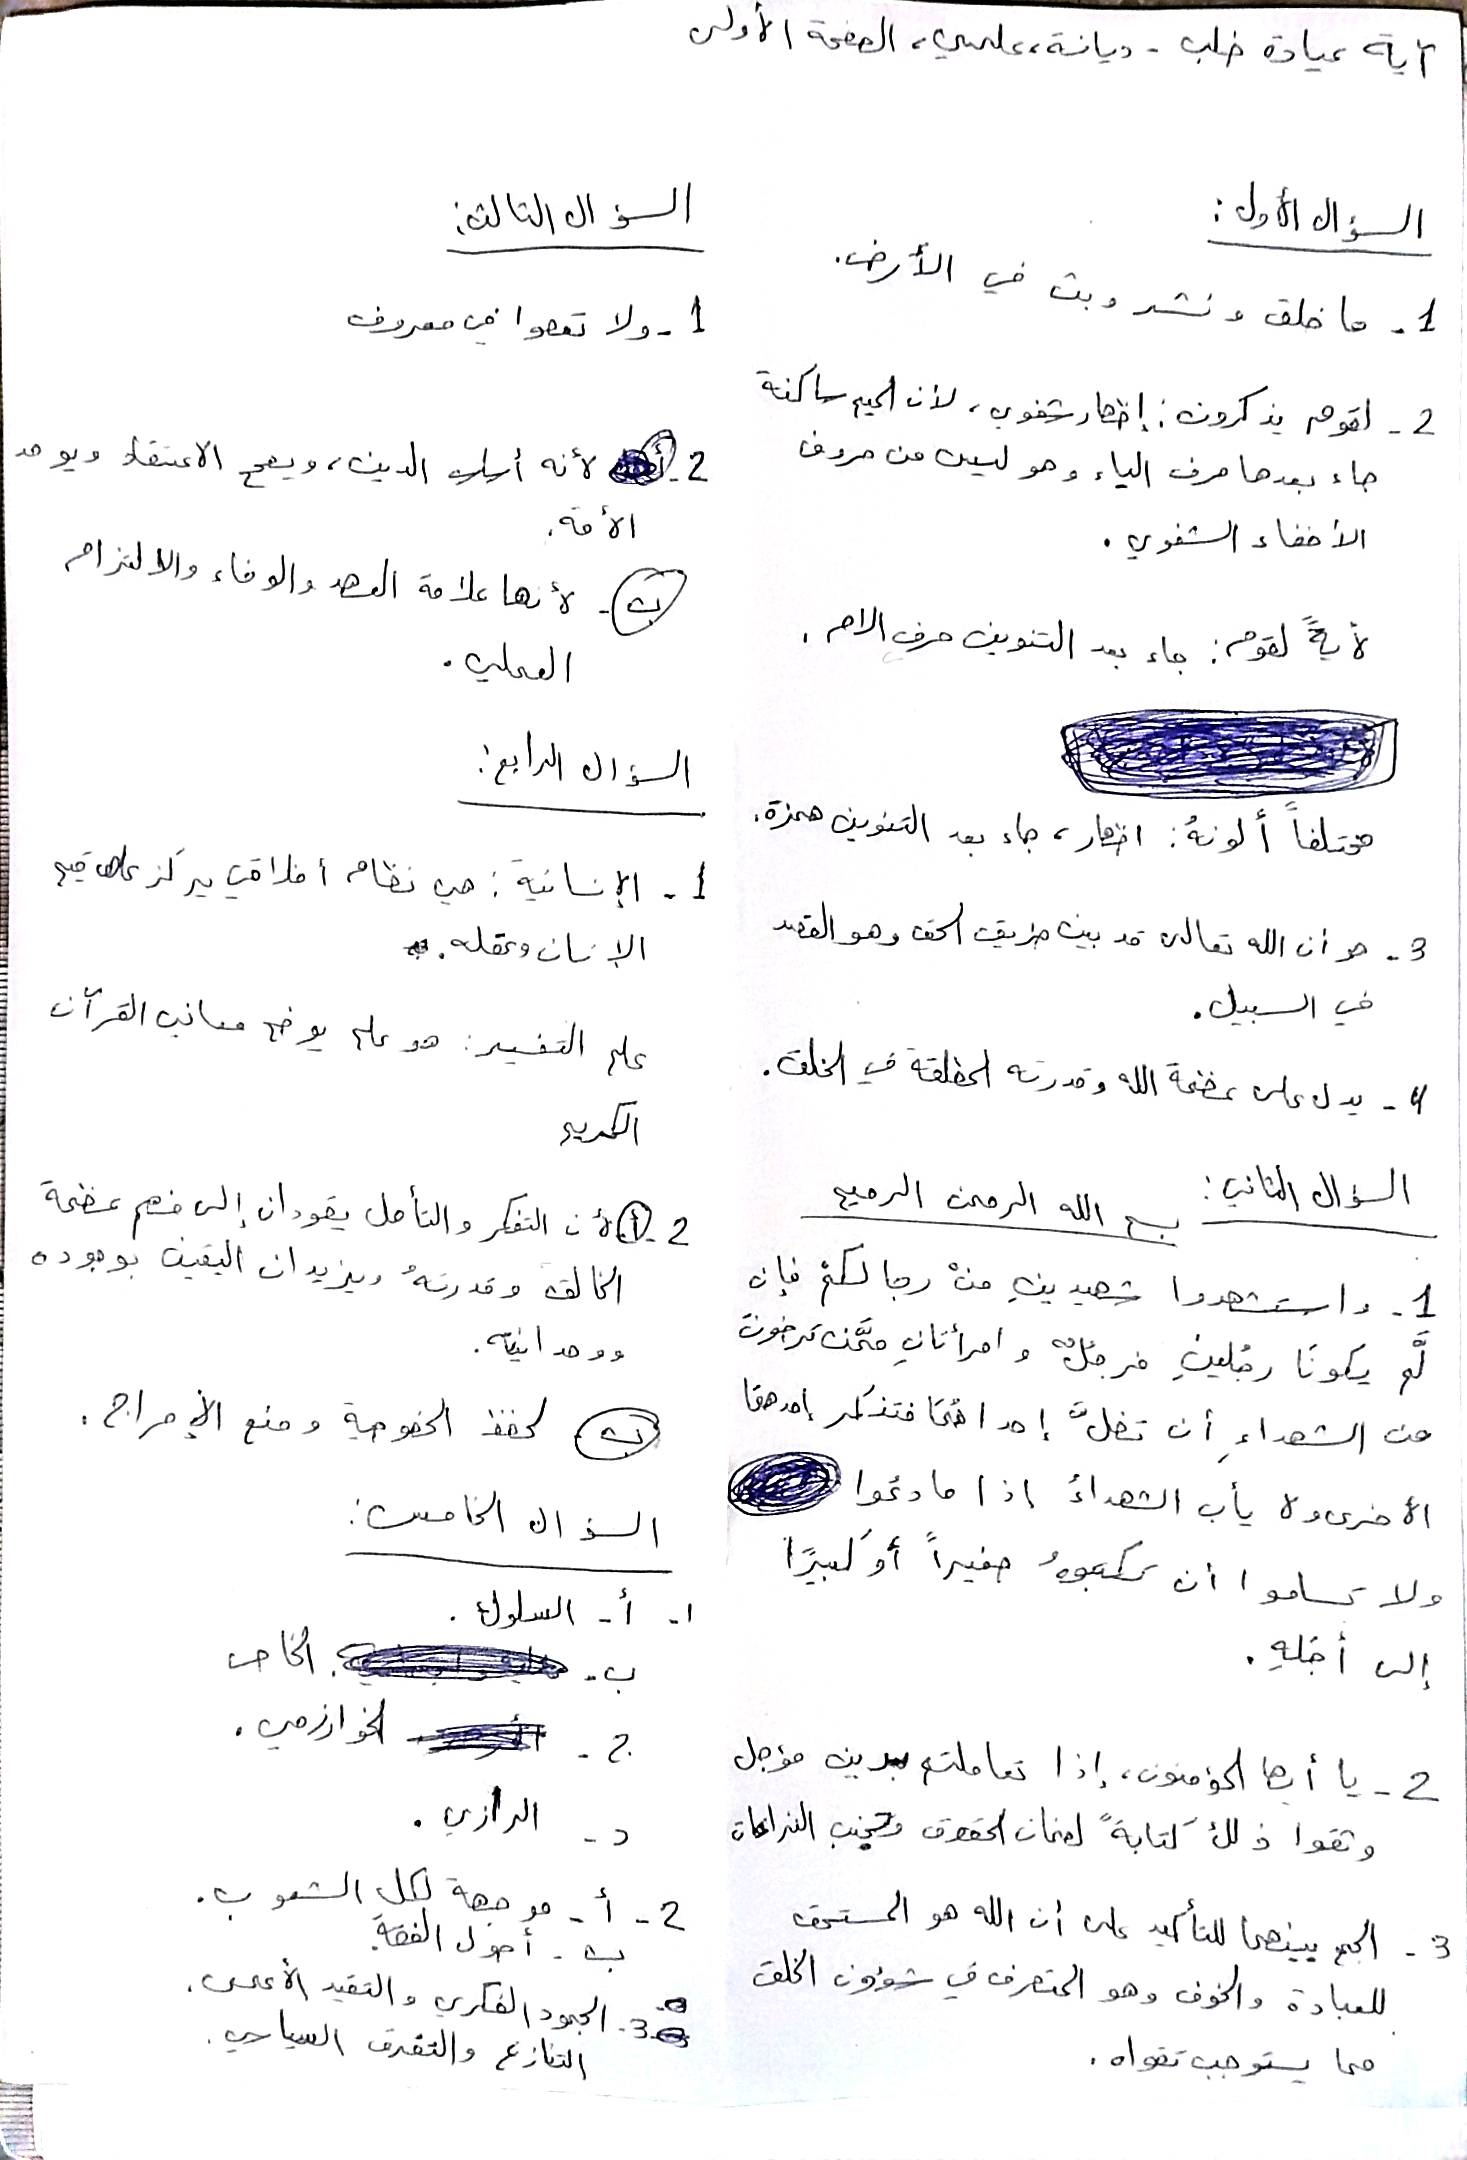 آية عيادة خلب - ديانة، علمي، الصفحة الأولى
السؤال الأول:
1- ما خلق ونشر وبث في الأرض.
2- لقوم يذكرون: إظهار شفوي، لأن الميم ساكنة
جاء بعدها حرف الياء وهو ليس من حروف
الأخفاء الشفوي.
لأيةً لقوم: جاء بعد التنوين حرف الام.
مختلفاً ألونهُ: اظهار، جاء بعد التنوين همزة.
3- هو أن الله تعالى قد بين طريق الحق وهو القصد
في السبيل.
4- يدل على عظمة الله وقدرته المطلقة في الخلق.
السؤال الثاني: بسم الله الرحمن الرحيم
1- واستشهدوا شهيدينِ منْ رجالكمْ فإن
لَّم يكونَا رجُلينِ فرجُلٌ وامرأتانِ ممَّن ترضونَ
من الشهداءِ أن تضلَّ إحداهُمَا فتذكر إحدهما
الأخرى ولا يأب الشهداءُ إذا ما دعُوا
ولا تسامواْ أن تكتبوهُ صغيراً أو كبيرًا
إلى أجَلهِ.
2- يا أيها المؤمنون، إذا تعاملتم بدين مؤجل
وثقوا ذلك كتابةً لضمان الحقوق وتجنب النزاعات
3- الجمع بينهما للتأكيد على أن الله هو المستحق
للعبادة والخوف وهو المتصرف في شؤون الخلق
مما يستوجب تقواه.
السؤال الثالث:
1- ولا تعصوا في معروف
2- لأنه أساس الدين، ويصحح الاعتقاد ويوحد
الأمة.
ب- لأنها علامة العهد والوفاء والالتزام
العملي.
السؤال الرابع:
1- الإنسانية: هي نظام أخلاقي يركز على قيم
الإنسان وعقله.
علم التفسير: هو علم يوضح معاني القرآن
الكريم
2- أ. لأن التفكر والتأمل يقودان إلى فهم عظمة
الخالق وقدرتهُ ويزيدان اليقين بوجوده
ووحدانيته.
ب- لحفظ الخصوصية ومنع الإحراج.
السؤال الخامس:
1- أ- السلوك.
ب- الخاص
ج- الخوارزمي.
د- الرازي.
2- أ- موجهة لكل الشعوب.
ب- أصول الفقه.
3- الجمود الفكري والتقيد الأعمى.
التنازع والتفرق السياسي.